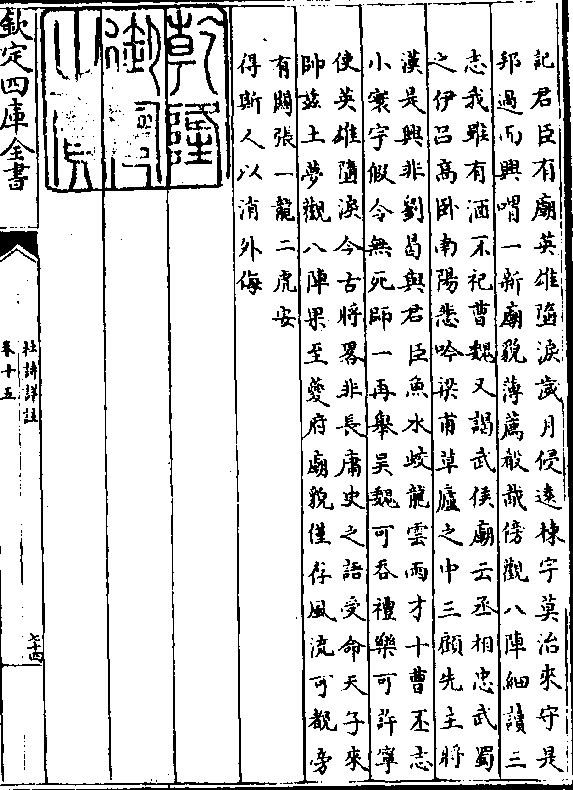 記君臣有廟英雄墮淚歲月侵遠棟宇莫治來守是
邦過而興喟一新廟貌薄薦殽胾傍觀八陣細讀三
志我雖有酒不祀曹魏又謁武侯廟云丞相忠武蜀
之伊呂高卧南陽悲吟梁甫草廬之中三顧先主將
漢是興非劉曷與君臣魚水蛟龍雲雨才十曹丕志
小寰宇假令無死師一再舉吳魏可吞禮樂可許寧
使英雄墮淚今古將畧非長庸史之語受命天子來
帥兹土夢觀八陣果至夔府廟貌僅存風流可覩旁
有關張一龍二虎安
得斯人以消外侮
乾隆
御覽
之寶
欽定四庫全書
杜詩詳註
卷十五
七十四